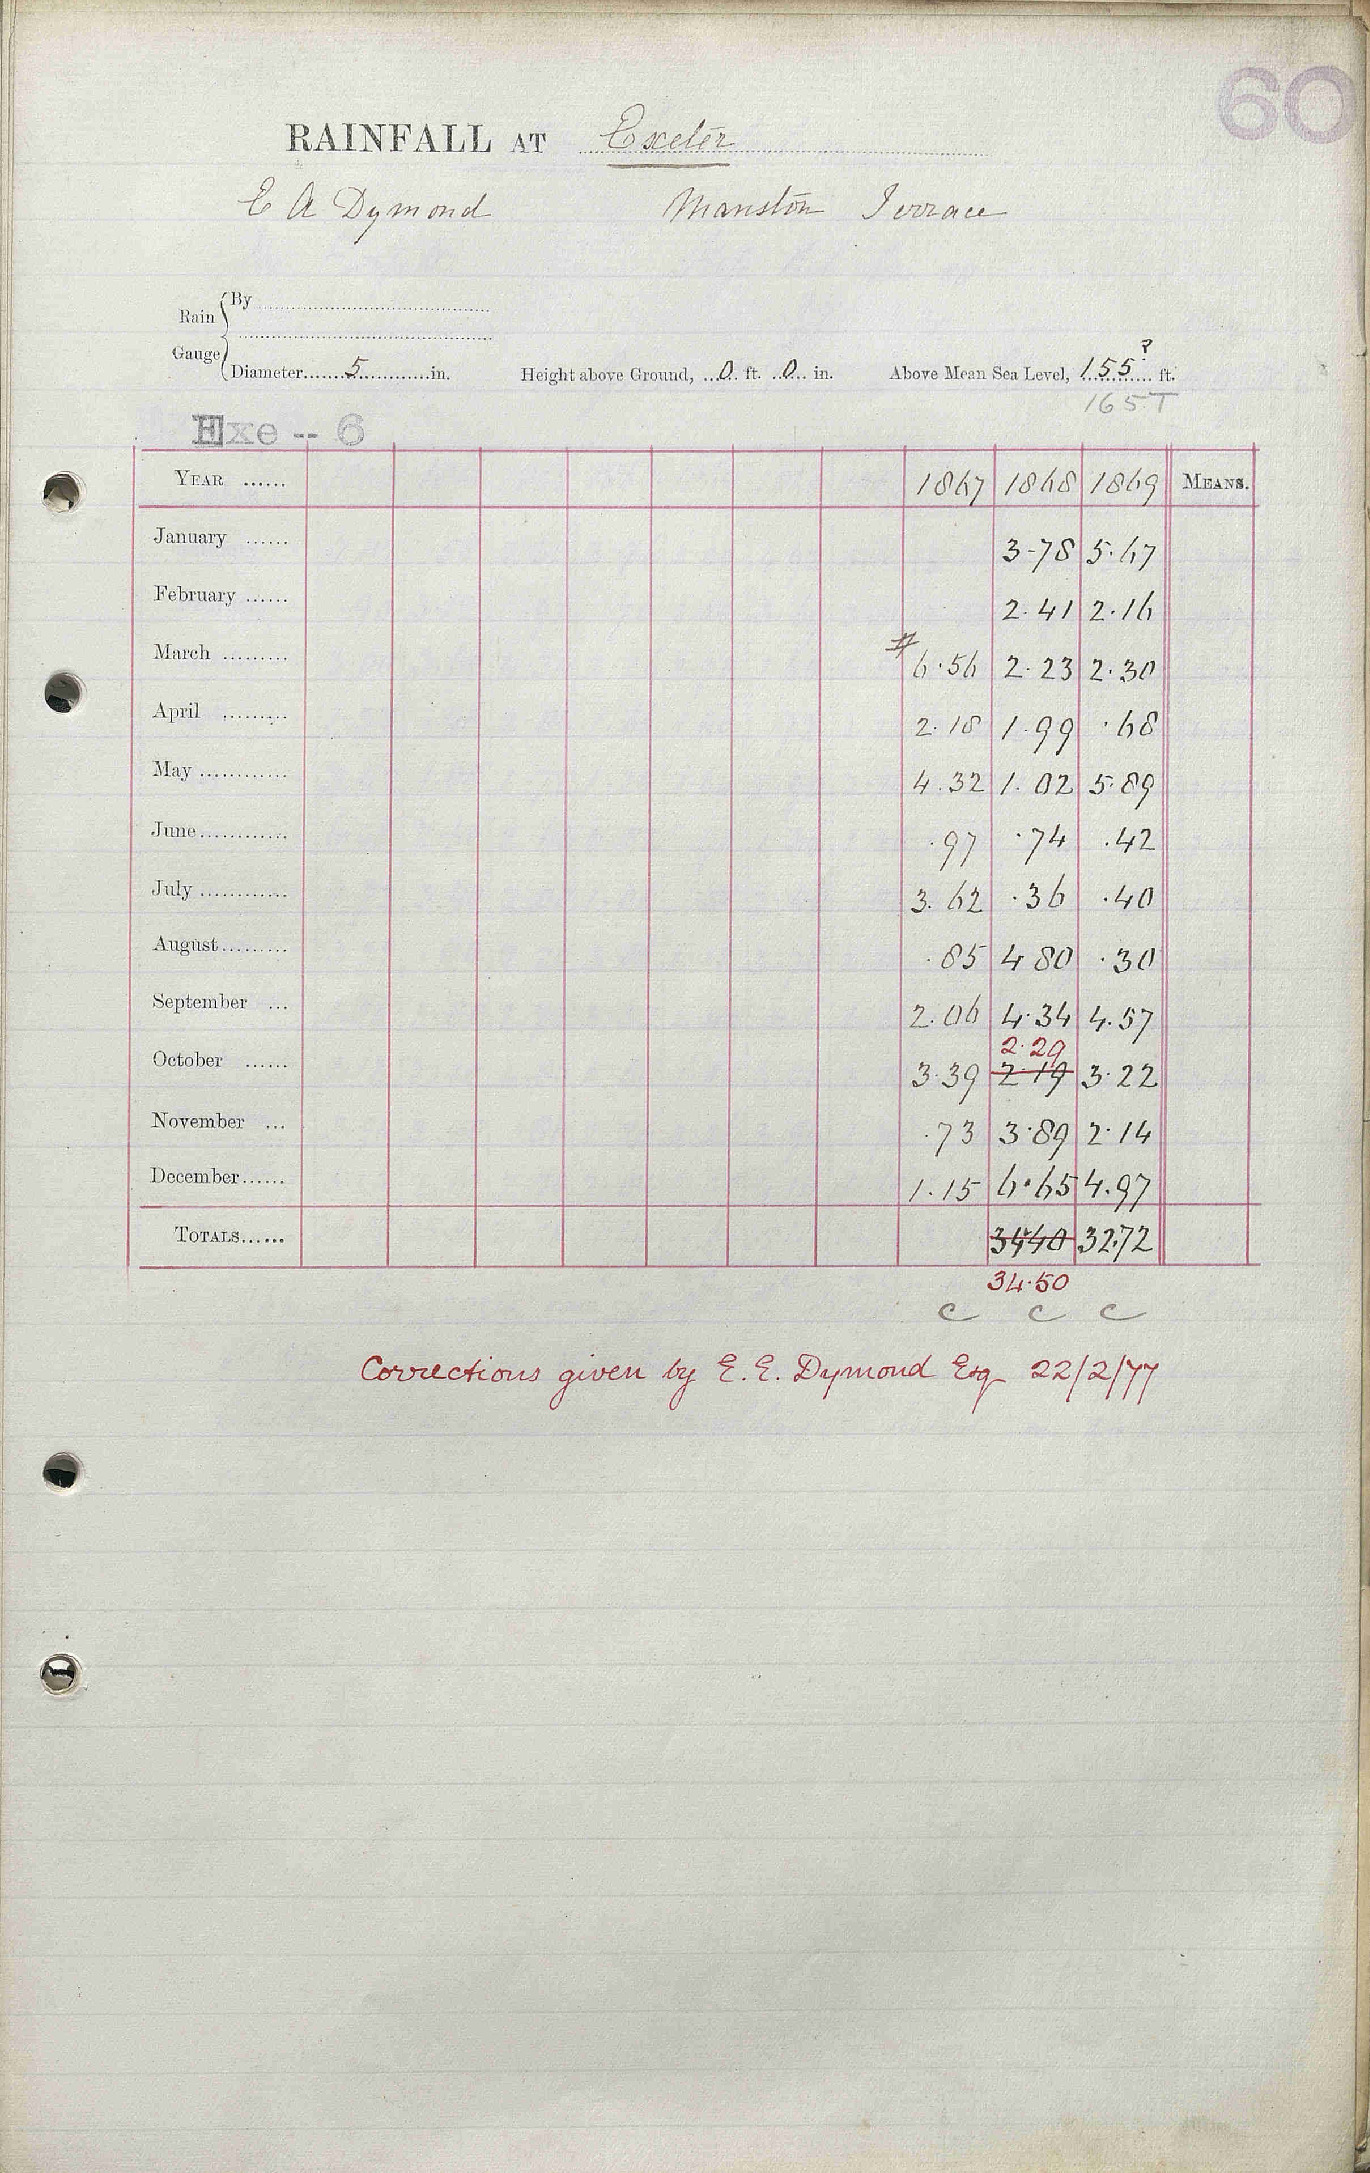 60
RAINFALL AT Exeter
E A Dymond Manston Terrace
Rain Gauge
By
Diameter 5 in. Height above Ground, 0 ft. 0 in. Above Mean Sea Level, 155? ft.
165T
Exe -- 6
YEAR 1867 1868 1869 MEANS.
January 3.78 5.67
February 2.41 2.16
March # 6.56 2.23 2.30
April 2.18 1.99 .68
May 4.32 1.02 5.89
June .97 .74 .42
July 3.62 .36 .40
August .85 4.80 .30
September 2.06 4.34 4.57
2.29
October 3.39 2.19 3.22
November .73 3.89 2.14
December 1.15 6.65 4.97
TOTALS 34.40 32.72
34.50
C C C
Corrections given by E. E. Dymond Esq 22/2/77